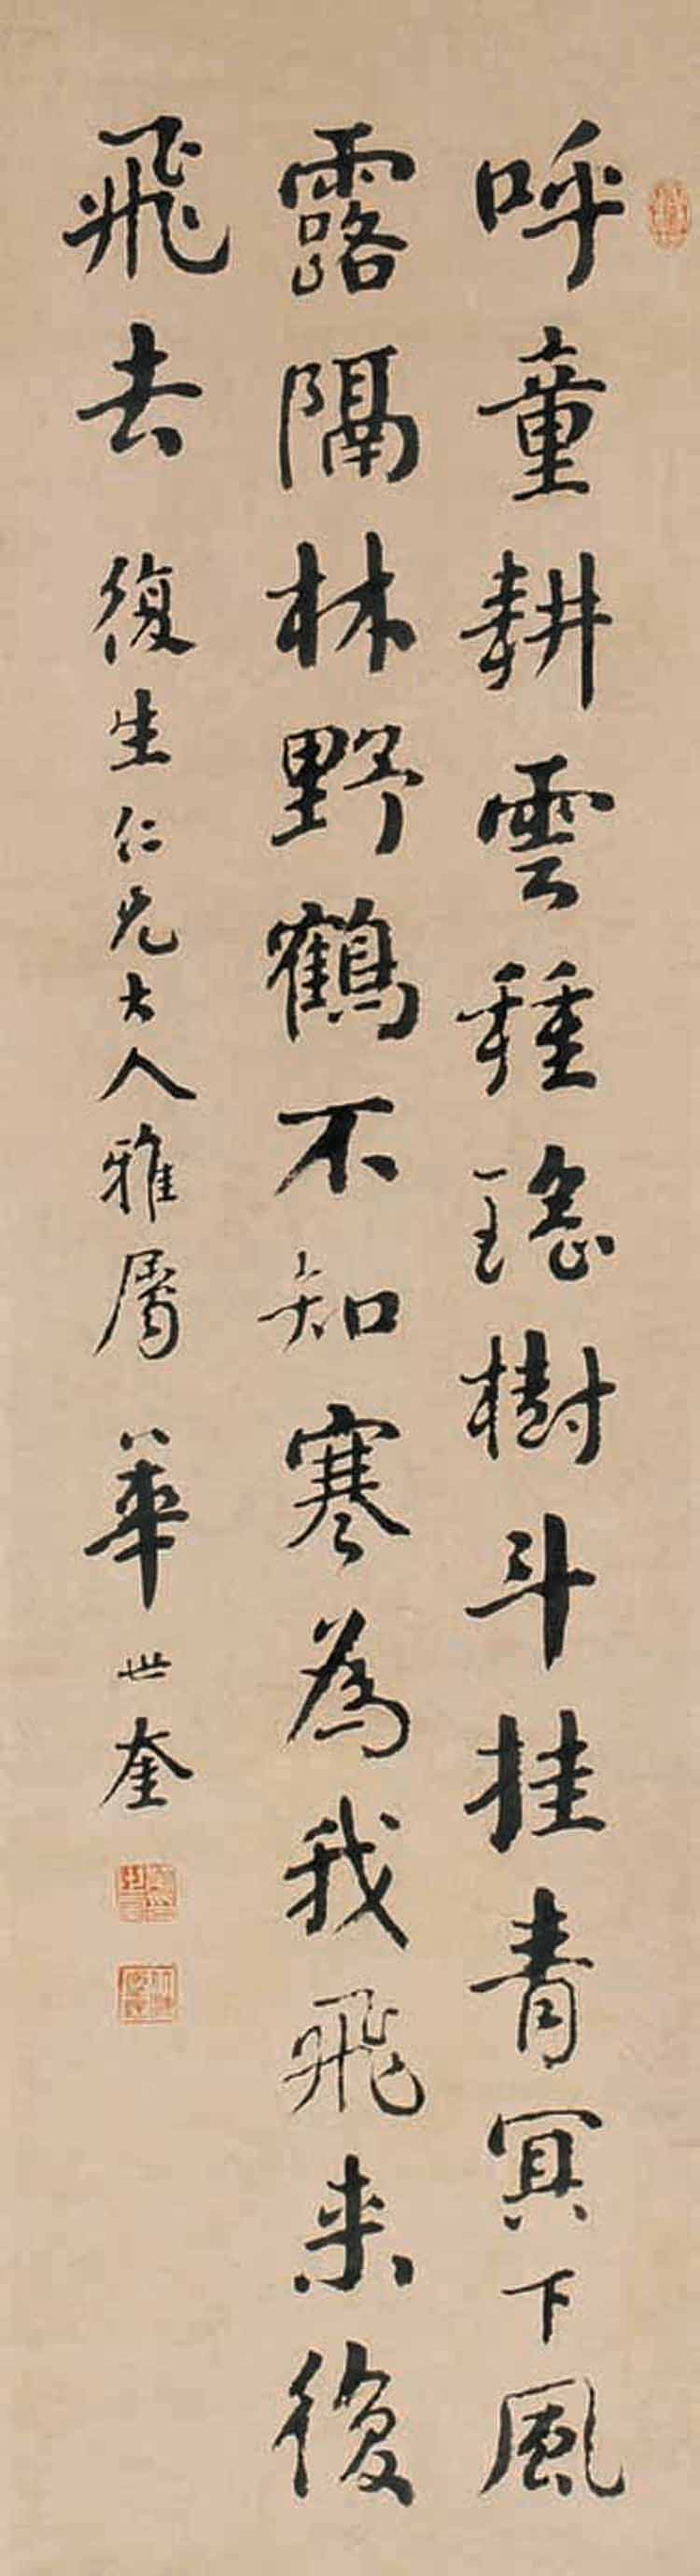 呼童耕雲種瑤樹斗挂青冥下風
露隔林野鶴不知寒為我飛来復
飛去 復生仁兄大人雅屬 華世奎